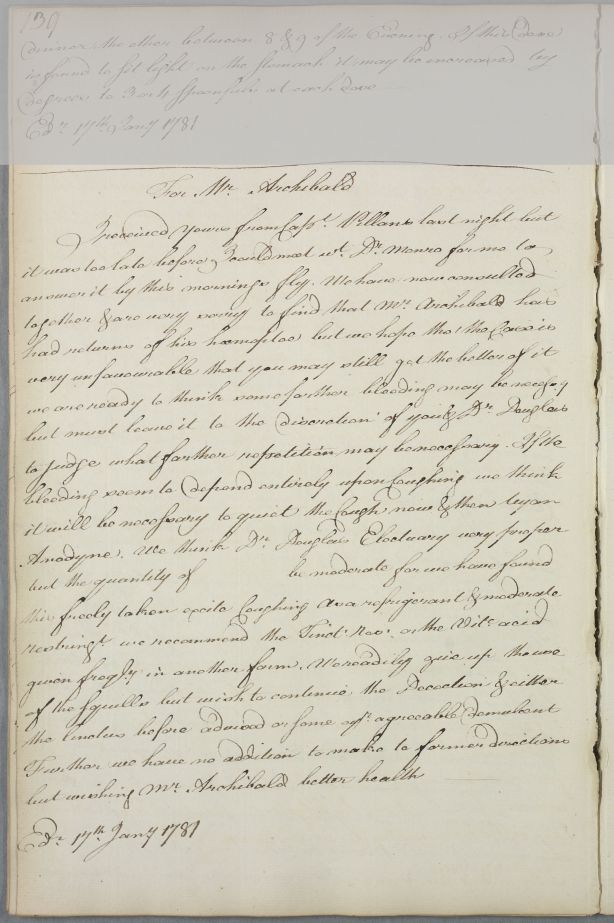 139
dinner the other between 8 & 9 of the Evening. If this Dose
is found to sit light on the stomach it may be increased by
degrees to 3 or 4 spoonfuls at each dose
Edr. 17th Jany 1781
For Mr. Archibald
I received yours from Capt. Villans last night but
it was too late before I could meet wt. Dr. Monro for me to
answer it by this mornings fly. We have now consulted
together & are very sorry to find that Mr Archibald has
had returns of his hæmoptoe but we hope tho' the Case is
very unfavourable that you may still get the better of it
we are ready to think some farther bleeding may be necessy
but must leave it to the discretion of you & Dr. Douglas
to judge what farther repetition may be necessary. If the
bleeding seem to depend entirely upon Coughing we think
it will be necessary to quiet the Cough now & then by an
Anodyne. We think Dr. Douglas's Electuary very proper
but the quantity of be moderate for we have found
this freely taken excite Coughing As a refrigerant & moderate
restringt. we recommend the Tinct: Ros: or the Vitc. acid
given freely in another form. We readily give up the use
of the Squills but wish to continue the Decoction & either
the linctus before advised or some oyr. agreeable Demulcent
Further we have no addition to make to former directions
but wishing Mr. Archibald better health
Edr 17th Jany 1781